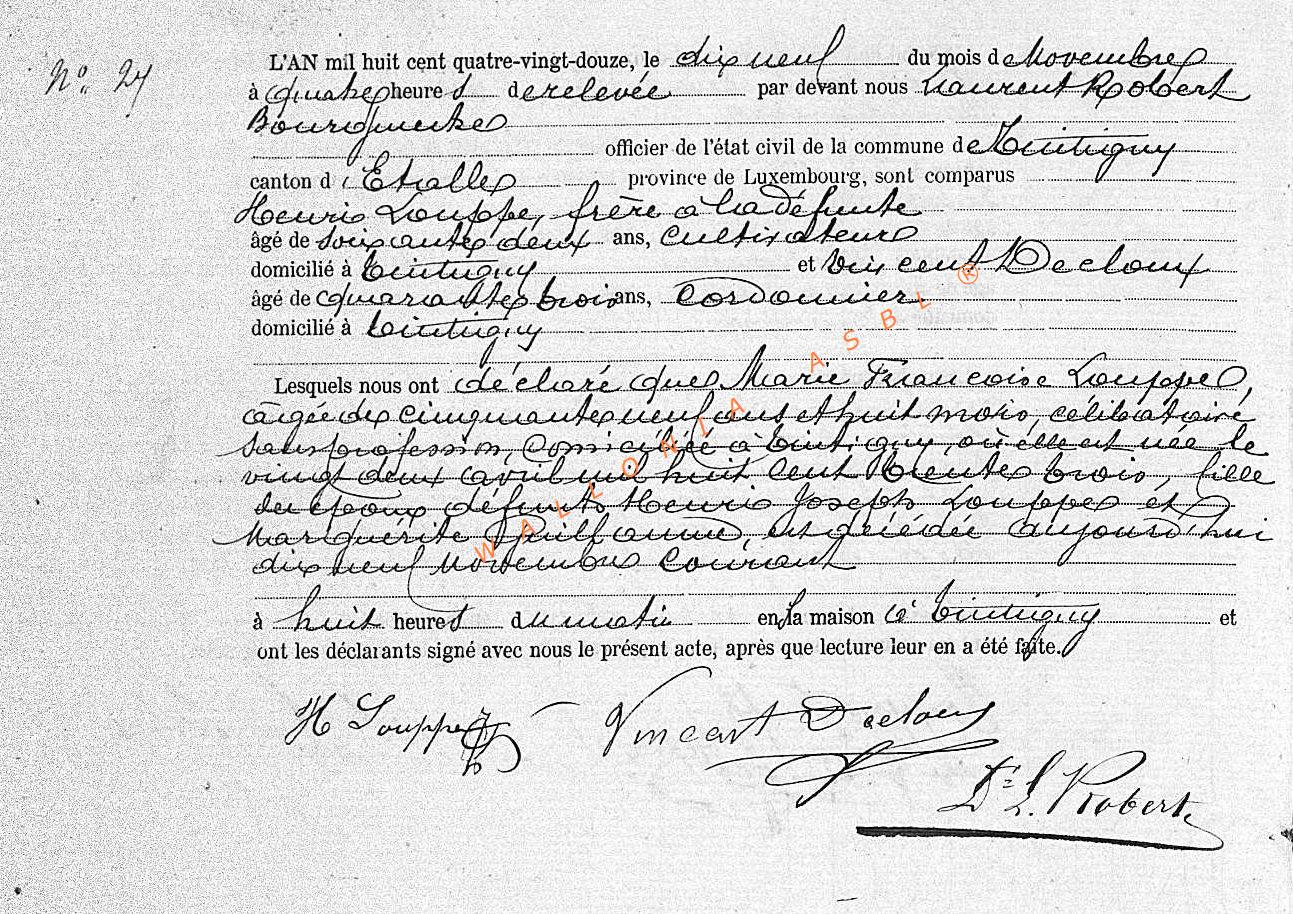 N° 24
L'AN mil huit cent quatre-vingt-douze, le dix neuf du mois de Novembre
à quatre heures de relevée par devant nous Laurent Robert
Bourgmestre
officier de l'état civil de la commune de Tintigny
canton d'Etalle province de Luxembourg, sont comparus
Henri Louppe, frère à la défunte
âgé de soixante deux ans, Cultivateur
domicilié à Tintigny et Vincent Decloux
âgé de quarante trois ans, Cordonnier
domicilié à Tintigny
Lesquels nous ont déclaré que Marie Françoise Louppe,
âgée de cinquante neuf ans et huit mois, célibataire
sans profession, domiciliée à Tintigny où elle est née le
vingt deux avril mil huit cent trente trois, fille
des époux défunts Henri Joseph Louppe et
Marguérite Guillaume, est décédée aujourd'hui
dix neuf Novembre courant
à huit heures du matin en sa maison à Tintigny et
ont les déclarants signé avec nous le présent acte, après que lecture leur en a été faite.
H Louppe Vincent Decloux
Dr L. Robert
WALLONIA ASBL ®